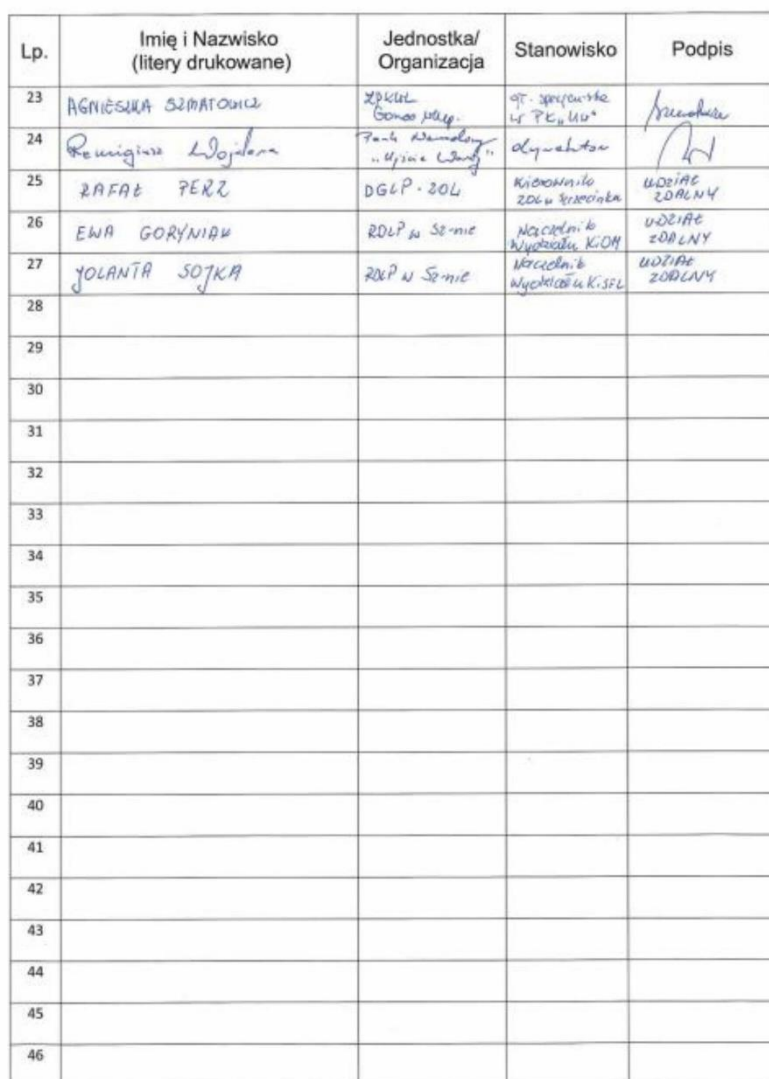 Lp. Imię i Nazwisko (litery drukowane) Jednostka/ Organizacja Stanowisko Podpis
23 AGNIESZKA SZMATOWICZ ZPKWL Gorzów Wlkp. gł. specjalista
24 Remigiusz Wojdera Park Narodowy "Ujście Warty"
25 RAFAŁ PERZ DGLP - ZOL Kierownik ZOL w Szczecinku UDZIAŁ ZDALNY
26 EWA GORYNIAK RDLP w Sz-nie Naczelnik Wydziału KiOM UDZIAŁ ZDALNY
27 JOLANTA SOJKA RDLP w Sz-nie Naczelnik Wydziału UDZIAŁ ZDALNY
28
29
30
31
32
33
34
35
36
37
38
39
40
41
42
43
44
45
46